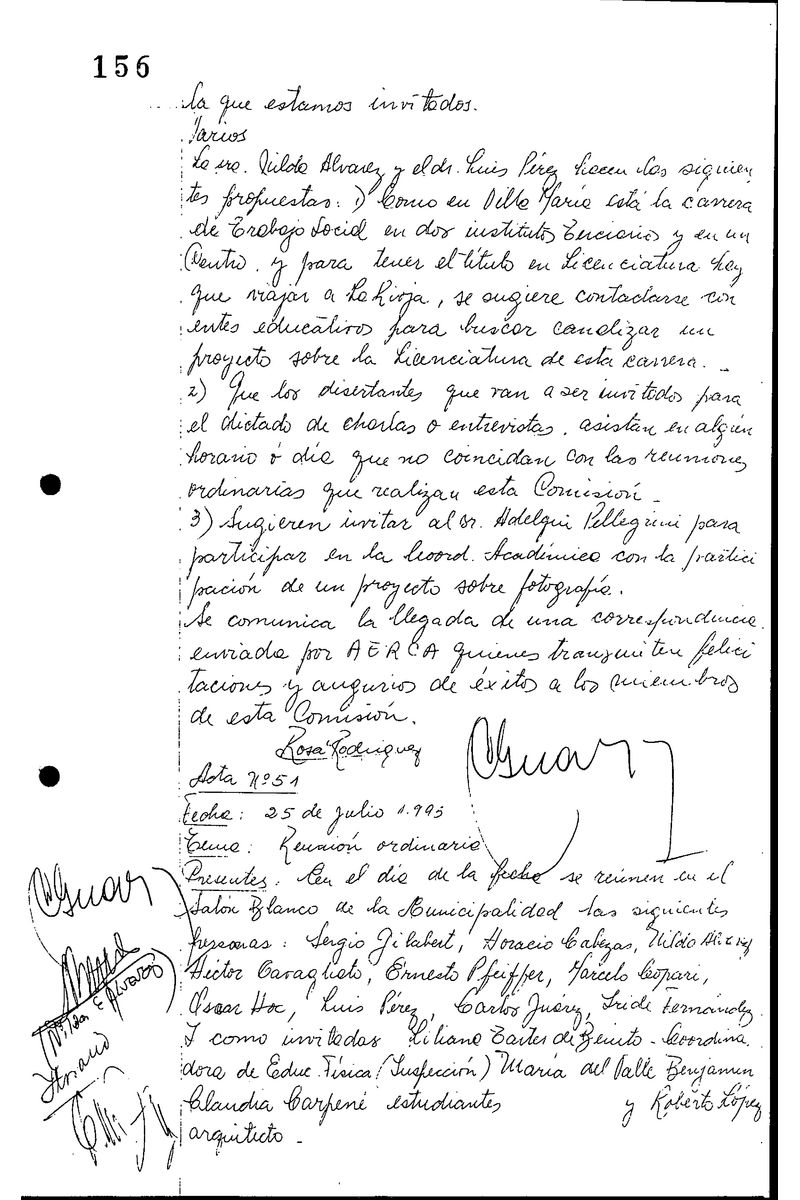 156
la que estamos invitados.
Varios
La sra. Nilda Alvarez y el dr. Luis Pérez hacen las siguien
tes propuestas: 1) Como en Villa María está la carrera
de Trabajo Social en dos institutos Terciarios y en un
Centro, y para tener el título en Licenciatura hay
que viajar a La Rioja, se sugiere contactarse con
entes educativos para buscar canalizar un
proyecto sobre la Licenciatura de esta carrera. _
2) Que los disertantes que van a ser invitados para
el dictado de charlas o entrevistas, asistan en algún
horario ó día que no coincidan con las reuniones
ordinarias que realizan esta Comisión _
3) Sugieren invitar al sr. Adelqui Pellegrini para
participar en la Coord. Académica con la partici
pación de un proyecto sobre fotografía.
Se comunica la llegada de una correspondencia
enviada por AERCA quienes transmiten felici
taciones y augurios de éxitos a los miembros
de esta Comisión.
Rosa Rodriguez
Acta Nº 51
Fecha: 25 de julio 1.995
Tema: Reunión ordinaria
Presentes: En el día de la fecha se reúnen en el
Salón Blanco de la Municipalidad las siguientes
personas: Sergio Gilabert, Horacio Cabezas, Nilda Alvarez
Héctor Cavagliato, Ernesto Pfeiffer, Marcelo Copari,
Oscar Hoc, Luis Pérez, Carlos Juárez, Iride Fernández.
Y como invitadas Liliana Tartes de Benito - Coordina
dora de Educ. Física (Inspección) María del Valle Benjamin
Claudia Carpené estudiantes y Roberto López
arquitecto _
Nilda E Alvarez